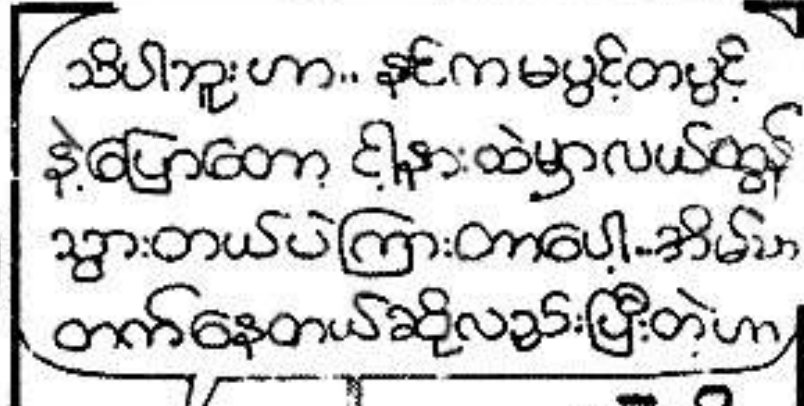 သိပါဘူးဟာ.. နင်ကမပွင့်တပွင့်
နဲ့ပြောတော့ ငါ့နားထဲမှာလယ်ထွန်
သွားတယ်ပဲကြားတာပေါ့..အိမ်ဟာ
တက်နေတယ်ဆိုလည်းပြီးတဲ့ဟာ